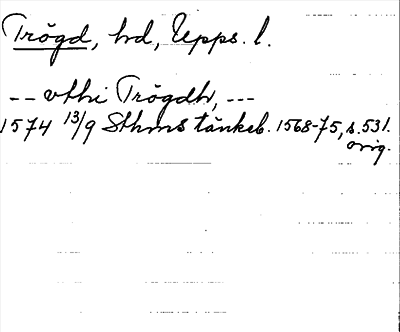 Trögd, hd, Upps. l.
-- vthi Trögdh, ---
1574 13/9 Sthms tänkeb. 1568-75, s. 531.
orig.